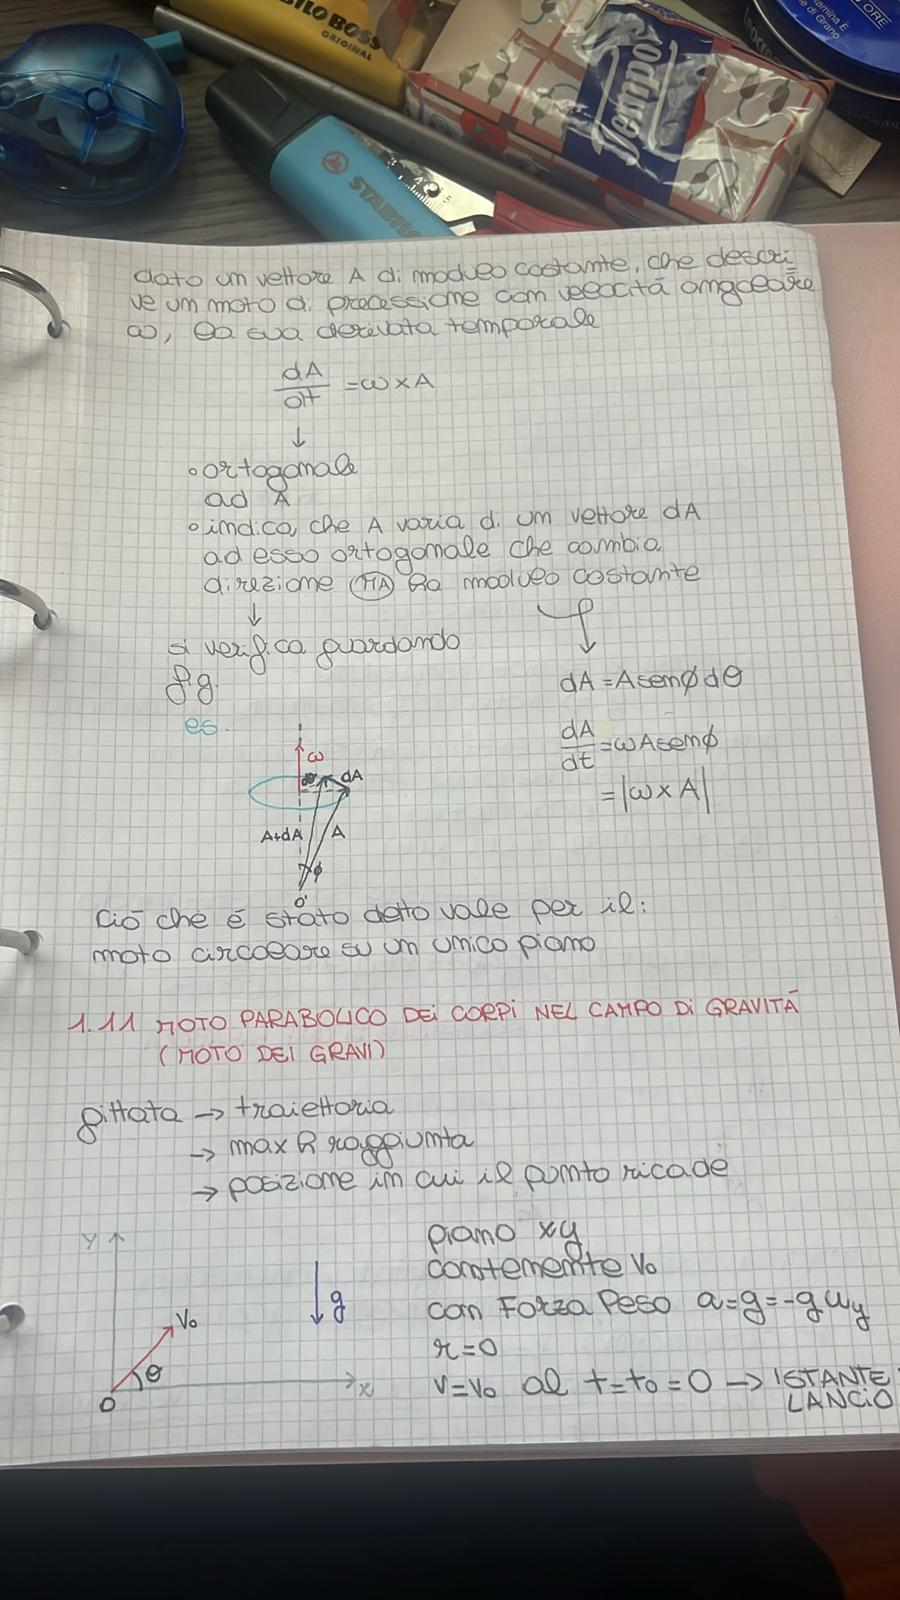 BILO BOSS
ORIGINAL
STABILO
Tempo
ORE
amina E
e di Grano
dato un vettore A di modulo costante, che descri
ve un moto di precessione con velocità angolare
ω, la sua derivata temporale
dA/dt = ω x A
↓
◦ ortogonale
ad A
◦ indica, che A varia di un vettore dA
ad esso ortogonale che cambia
direzione MA ha modulo costante
↓
si verifica guardando
fig.
dA = A senϕ dθ
dA/dt = ωA senϕ
= |ω x A|
es.
ω
dθ
dA
A+dA
A
ϕ
O'
Ciò che è stato detto vale per il:
moto circolare su un unico piano
1.11 MOTO PARABOLICO DEI CORPI NEL CAMPO DI GRAVITÀ
(MOTO DEI GRAVI)
gittata → traiettoria
→ max h raggiunta
→ posizione in cui il punto ricade
Y
g
V₀
θ
O
x
piano xy
contenente V₀
con Forza Peso a=g=-g uy
r=0
V=V₀ al t=t₀=0 → ISTANTE
LANCIO